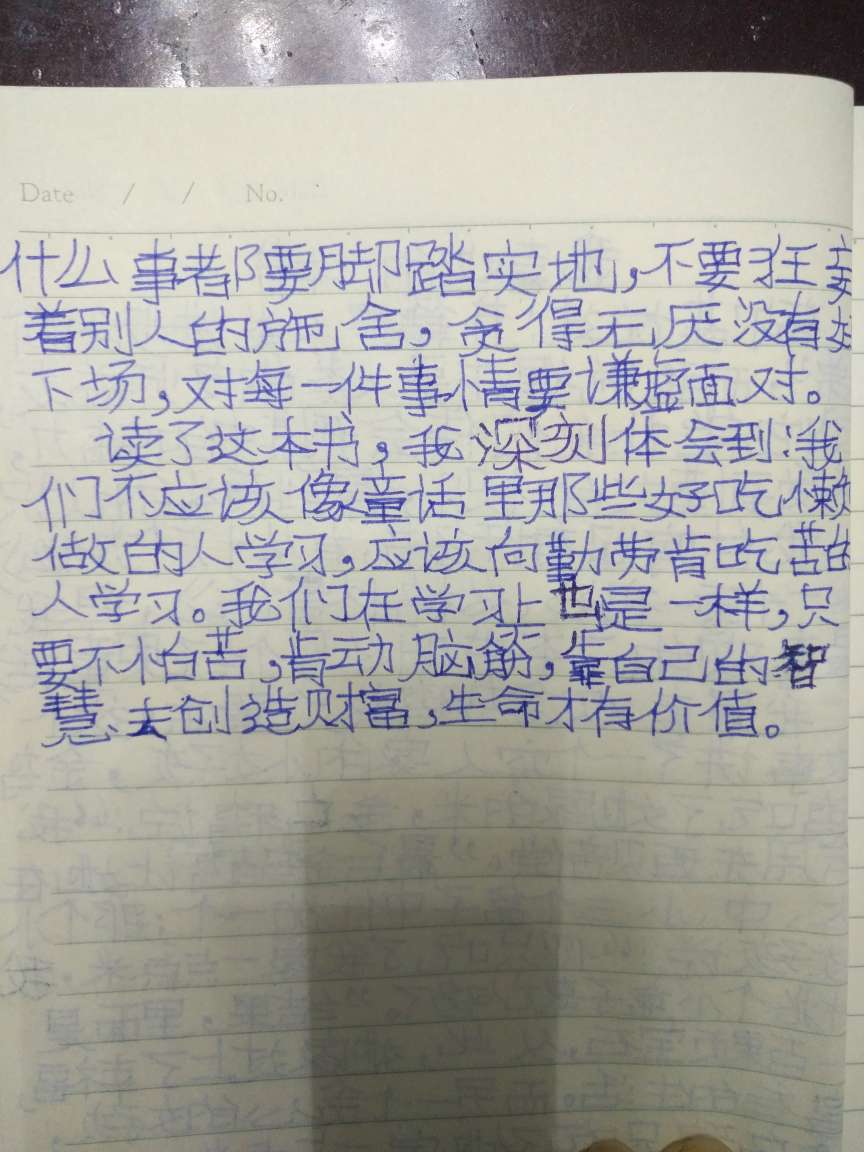 Date / / No.
什么事都要脚踏实地,不要狂妄
着别人的施舍,贪得无厌没有好
下场,对每一件事情要谦虚面对。
读了这本书,我深刻体会到:我
们不应该像童话里那些好吃懒
做的人学习,应该向勤劳肯吃苦的
人学习。我们在学习上也是一样,只
要不怕苦,肯动脑筋,靠自己的智
慧去创造财富,生命才有价值。